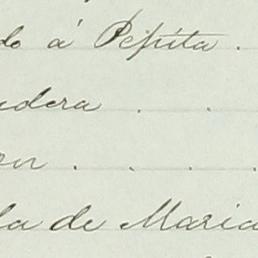 do á Pepita .
dera . .
on . . .
la de Maria